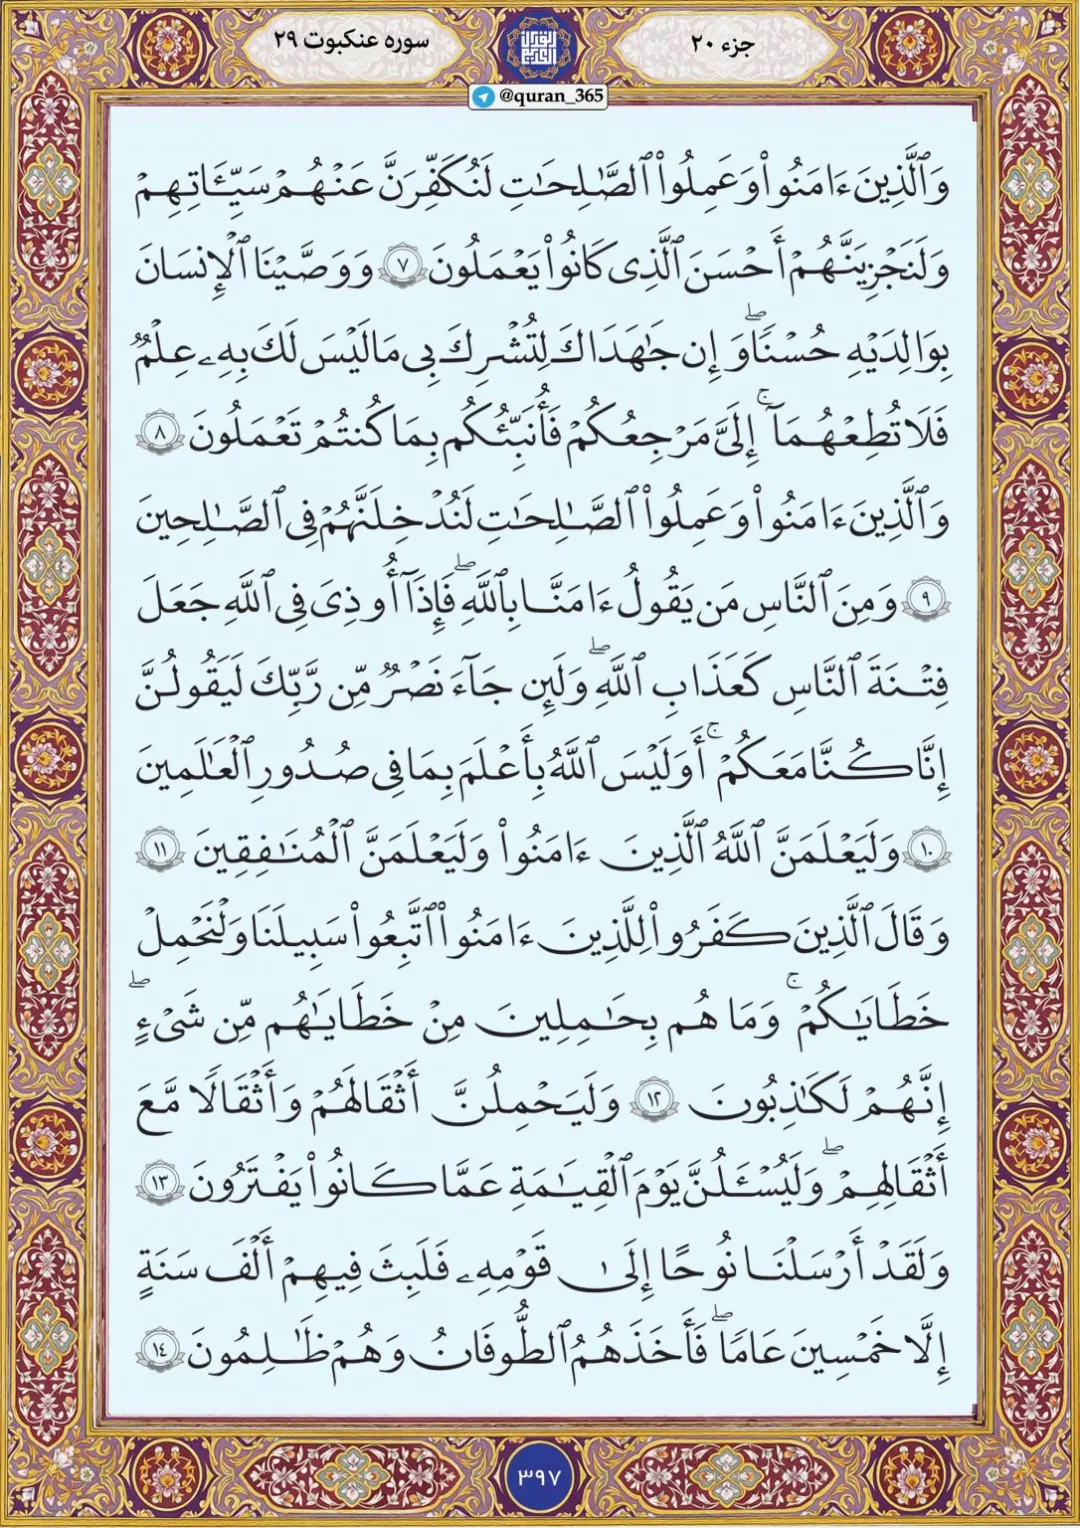 جزء ۲۰
سوره عنکبوت ۲۹
@quran_365
وَٱلَّذِينَ ءَامَنُوا۟ وَعَمِلُوا۟ ٱلصَّـٰلِحَـٰتِ لَنُكَفِّرَنَّ عَنْهُمْ سَيِّـَٔاتِهِمْ
وَلَنَجْزِيَنَّهُمْ أَحْسَنَ ٱلَّذِى كَانُوا۟ يَعْمَلُونَ ۷ وَوَصَّيْنَا ٱلْإِنسَانَ
بِوَالِدَيْهِ حُسْنًاۖ وَإِن جَـٰهَدَاكَ لِتُشْرِكَ بِى مَا لَيْسَ لَكَ بِهِۦ عِلْمٌ
فَلَا تُطِعْهُمَآۚ إِلَىَّ مَرْجِعُكُمْ فَأُنَبِّئُكُم بِمَا كُنتُمْ تَعْمَلُونَ ۸
وَٱلَّذِينَ ءَامَنُوا۟ وَعَمِلُوا۟ ٱلصَّـٰلِحَـٰتِ لَنُدْخِلَنَّهُمْ فِى ٱلصَّـٰلِحِينَ
۹ وَمِنَ ٱلنَّاسِ مَن يَقُولُ ءَامَنَّا بِٱللَّهِۖ فَإِذَآ أُوذِىَ فِى ٱللَّهِ جَعَلَ
فِتْنَةَ ٱلنَّاسِ كَعَذَابِ ٱللَّهِۖ وَلَئِن جَآءَ نَصْرٌ مِّن رَّبِّكَ لَيَقُولُنَّ
إِنَّا كُنَّا مَعَكُمْۚ أَوَلَيْسَ ٱللَّهُ بِأَعْلَمَ بِمَا فِى صُدُورِ ٱلْعَـٰلَمِينَ
۱۰ وَلَيَعْلَمَنَّ ٱللَّهُ ٱلَّذِينَ ءَامَنُوا۟ وَلَيَعْلَمَنَّ ٱلْمُنَـٰفِقِينَ ۱۱
وَقَالَ ٱلَّذِينَ كَفَرُوا۟ لِلَّذِينَ ءَامَنُوا۟ ٱتَّبِعُوا۟ سَبِيلَنَا وَلْنَحْمِلْ
خَطَـٰيَـٰكُمْۚ وَمَا هُم بِحَـٰمِلِينَ مِنْ خَطَـٰيَـٰهُم مِّن شَىْءٍۖ
إِنَّهُمْ لَكَـٰذِبُونَ ۱۲ وَلَيَحْمِلُنَّ أَثْقَالَهُمْ وَأَثْقَالًا مَّعَ
أَثْقَالِهِمْۖ وَلَيُسْـَٔلُنَّ يَوْمَ ٱلْقِيَـٰمَةِ عَمَّا كَانُوا۟ يَفْتَرُونَ ۱۳
وَلَقَدْ أَرْسَلْنَا نُوحًا إِلَىٰ قَوْمِهِۦ فَلَبِثَ فِيهِمْ أَلْفَ سَنَةٍ
إِلَّا خَمْسِينَ عَامًاۖ فَأَخَذَهُمُ ٱلطُّوفَانُ وَهُمْ ظَـٰلِمُونَ ۱٤
۳۹۷